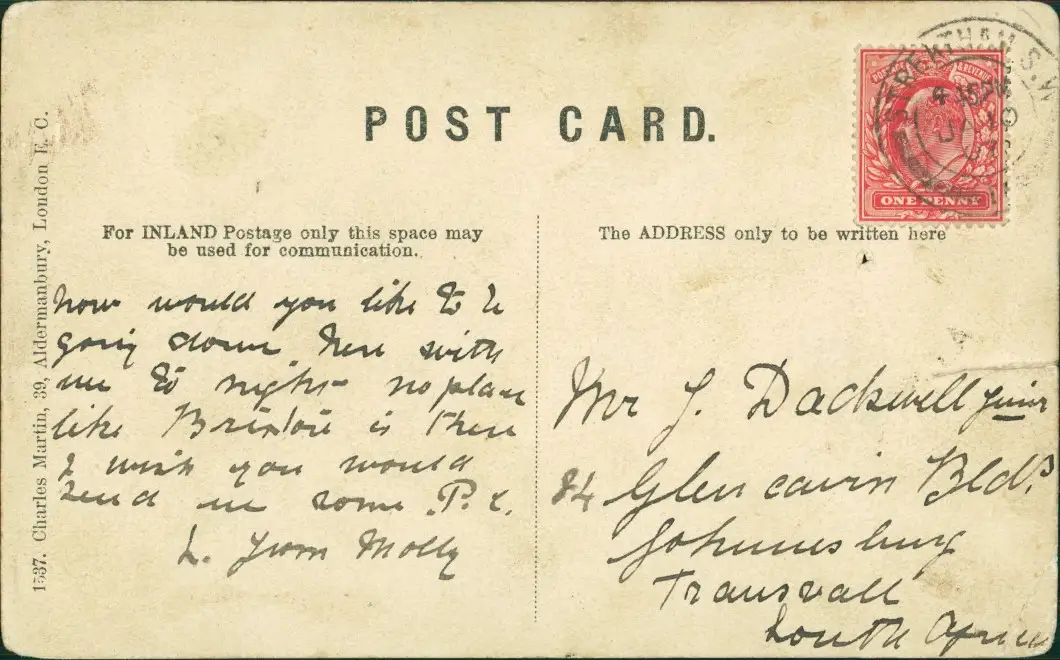 POST CARD.
1537. Charles Martin, 39, Aldermanbury, London E. C.
For INLAND Postage only this space may
be used for communication.
The ADDRESS only to be written here
STREATHAM S.W
POSTAGE & REVENUE
ONE PENNY
how would you like to be
going down here with
me to night no place
like Brixton is there
I wish you would
send me some P.C.
L. from Molly
Mr J. Dackwell Junir
84 Glencairn Bldgs
Johannesburg
Transvall
South Africa